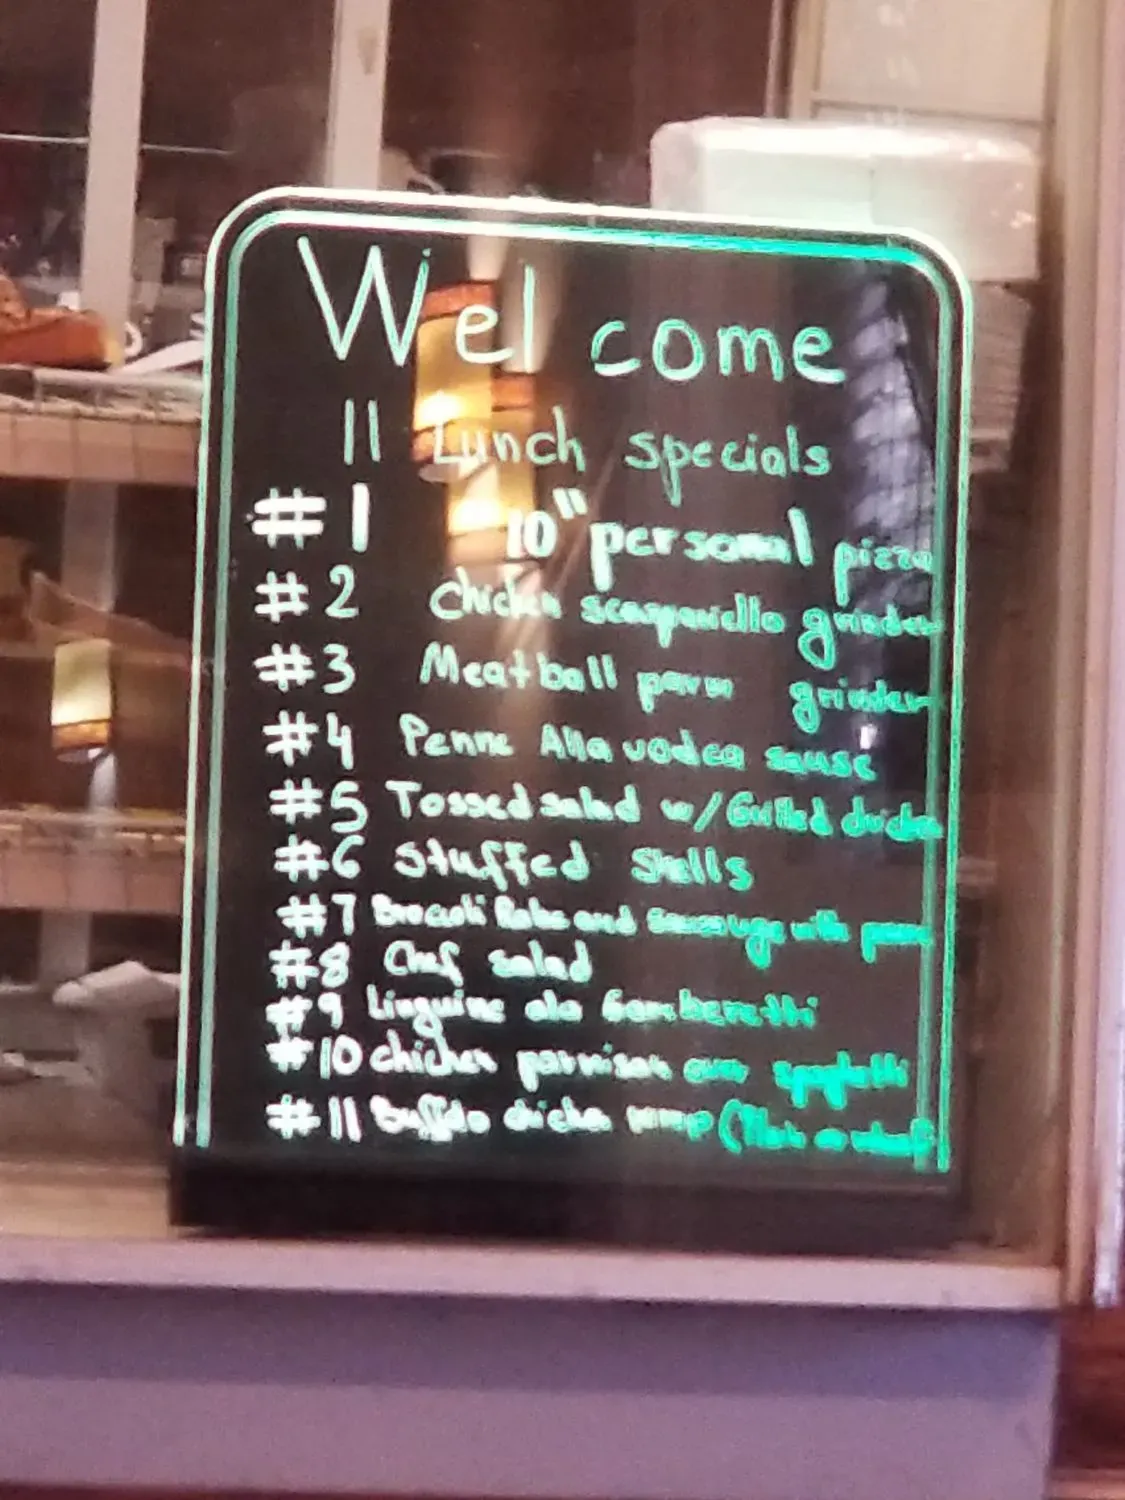 Welcome
11 Lunch specials
#1 10" personal pizza
#2 Chicken scarpariello grinder
#3 Meatball parm grinder
#4 Penne Alla vodca sause
#5 Tossed salad w/ Grilled chicken
#6 Stuffed Shells
#7 Broccoli Rabe and sausauge with
#8 Chef salad
#9 Linguine ala Gamberetti
#10 chicken parmisan over spaghetti
#11 Buffalo chicken wrap